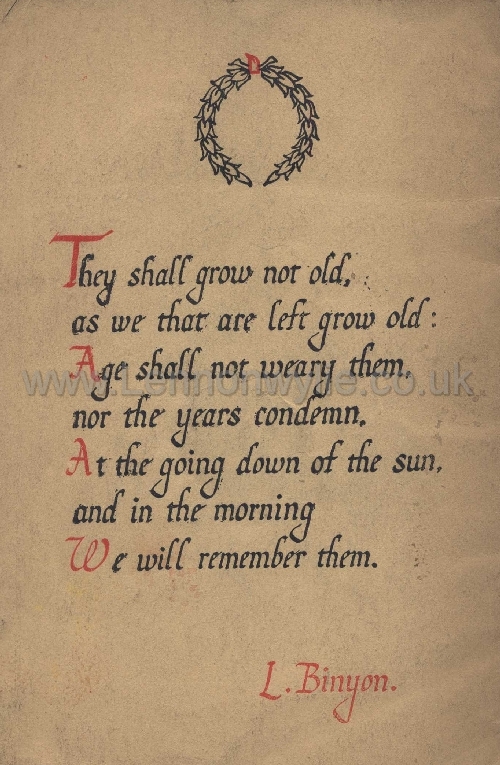 They shall grow not old,
as we that are left grow old:
Age shall not weary them,
nor the years condemn.
At the going down of the sun,
and in the morning
We will remember them.
L. Binyon.